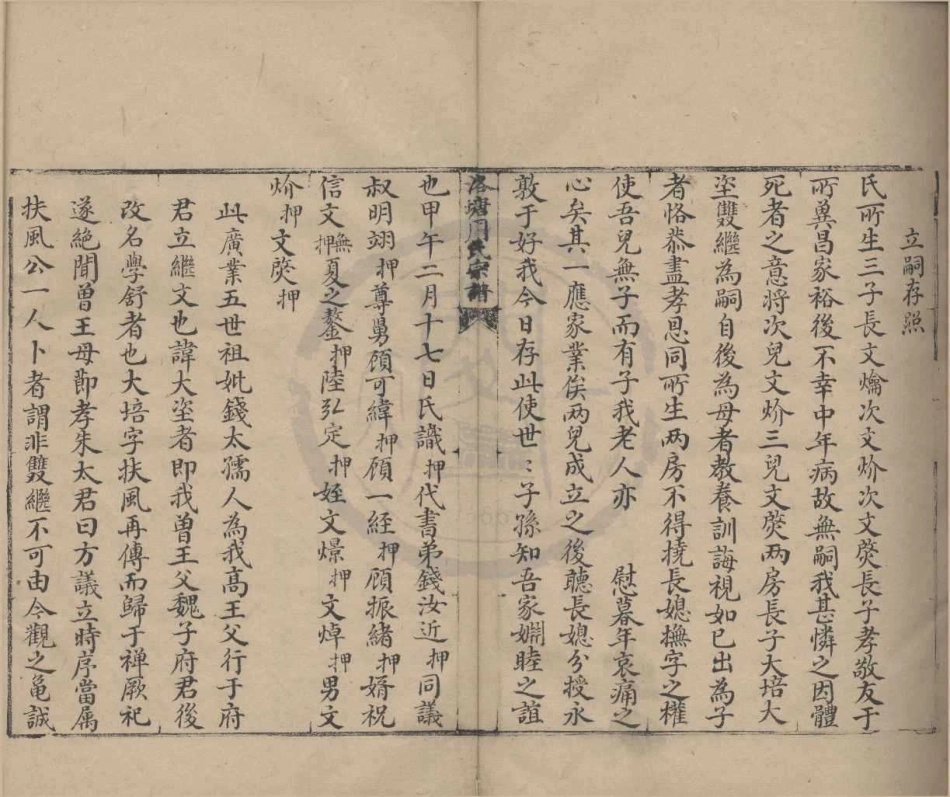 立嗣存照
氏所生三子長文爚次文炌次文熒長子孝敬友于
所冀昌家裕後不幸中年病故無嗣我甚憐之因體
死者之意將次兒文炌三兒文熒两房長子大培大
坙雙繼為嗣自後為母者教養訓誨視如已出為子
者恪恭盡孝思同所生两房不得撓長媳撫字之權
使吾兒無子而有子我老人亦　慰暮年哀痛之
心矣其一應家業俟两兒成立之後聽長媳分授永
敦于好我今日存此使世〻子孫知吾家嫻睦之誼
也甲午二月十七日氏識押代書弟錢汝近押同議
叔明翊押尊舅顧可緯押顧一経押顧振緒押婿祝
信文撫押夏之鏊押陸弘定押姪文燝押文焯押男文
炌押文熒押
此廣業五世祖妣錢太孺人為我高王父行于府
君立繼文也諱大坙者即我曽王父魏子府君後
改名學舒者也大培字扶風再傳而歸于禅厥祀
遂絶聞曽王母節孝朱太君曰方議立時序當属
扶風公一人卜者謂非雙繼不可由今觀之亀誠
洛塘周氏宗譜